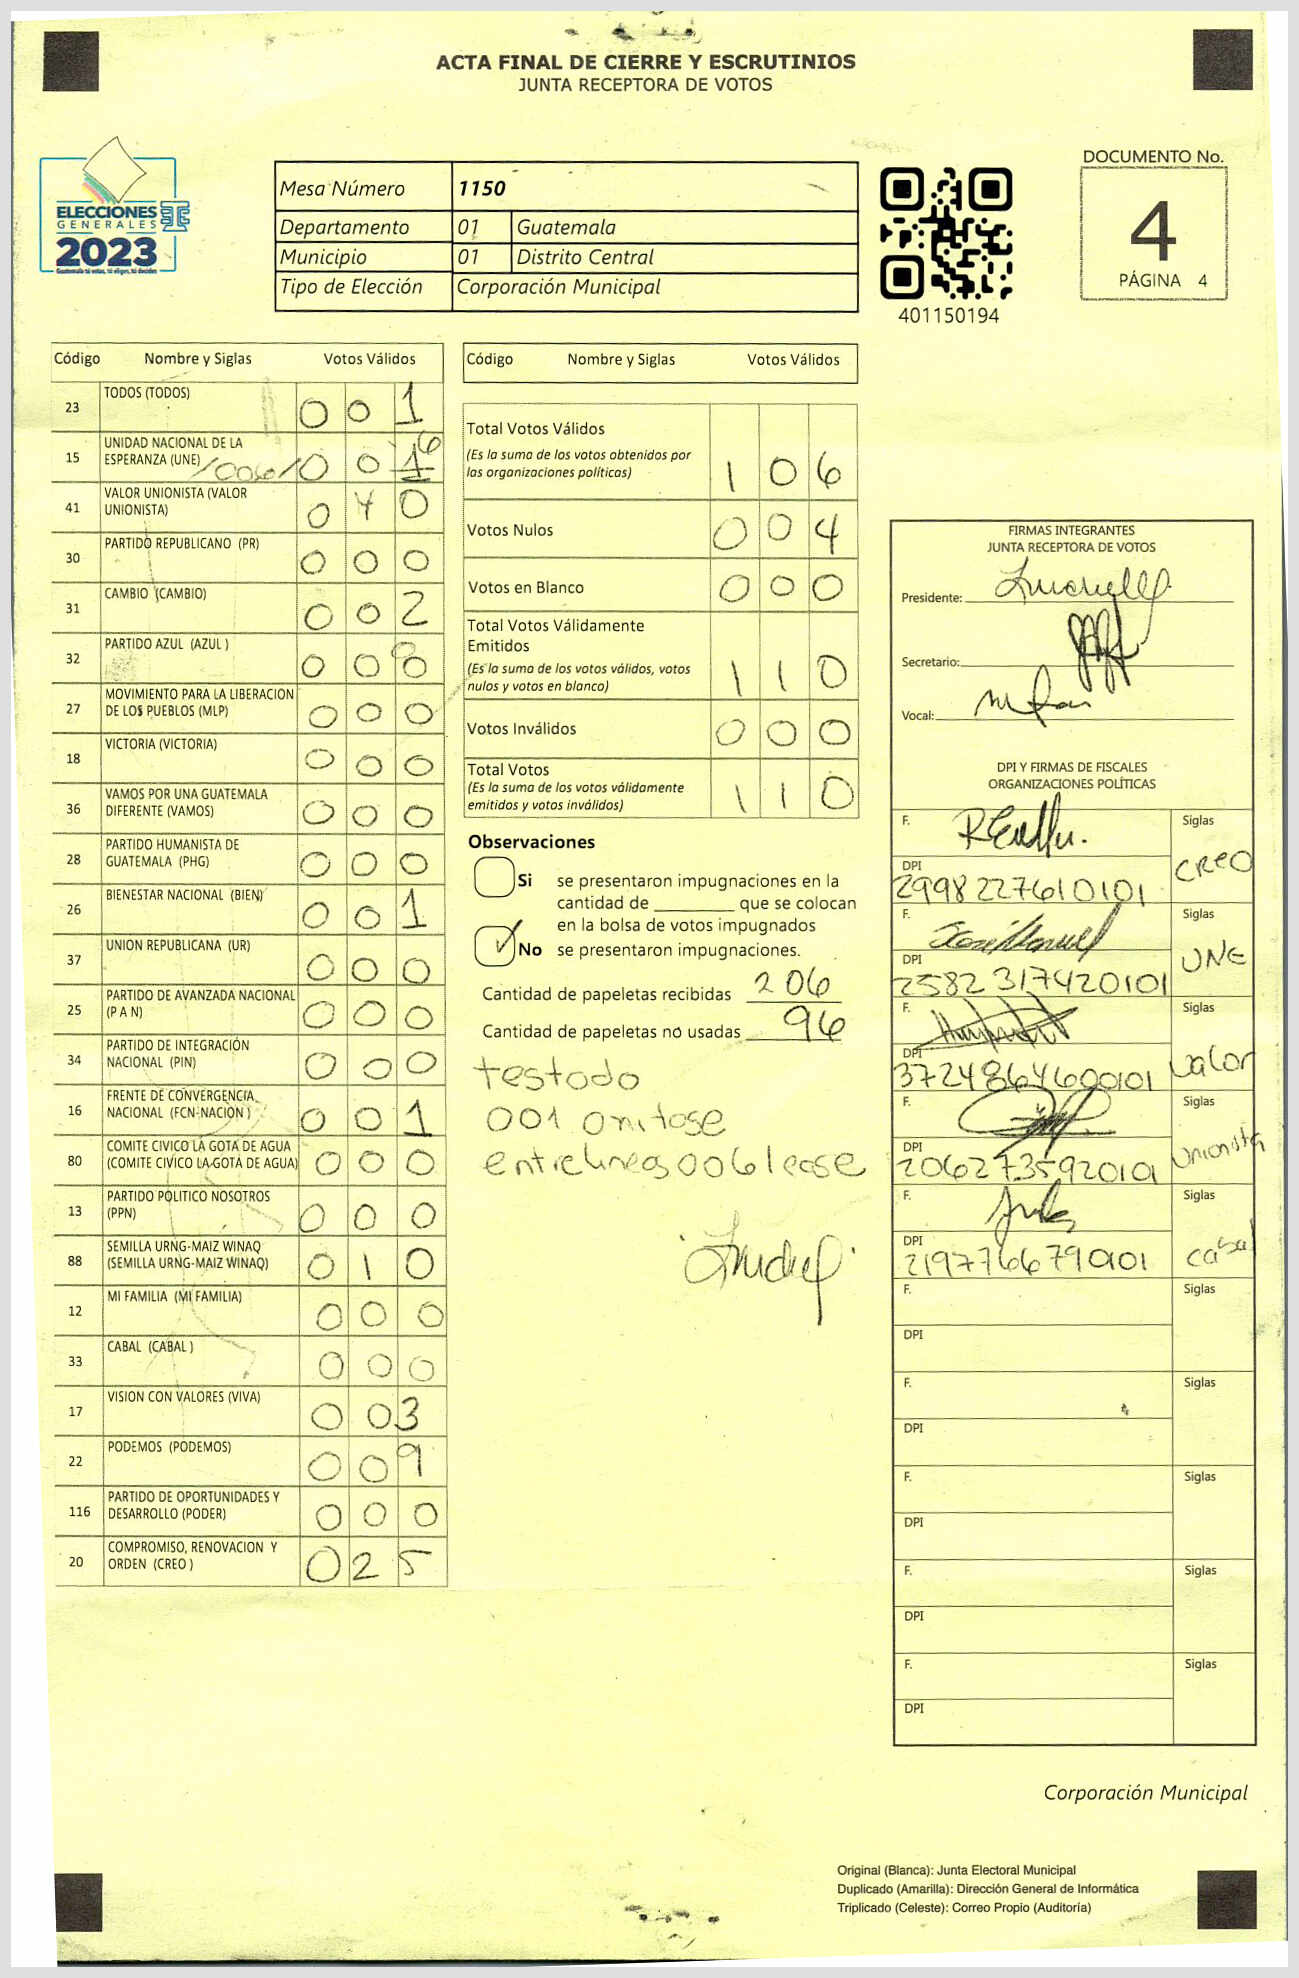 ACTA FINAL DE CIERRE Y ESCRUTINIOS
JUNTA RECEPTORA DE VOTOS
ELECCIONES
GENERALES
2023
Guatemala tú votas, tú eliges, tú decides
Mesa Número 1150
Departamento 01 Guatemala
Municipio 01 Distrito Central
Tipo de Elección Corporación Municipal
401150194
DOCUMENTO No.
4
PÁGINA 4
Código Nombre y Siglas Votos Válidos
23 TODOS (TODOS) 0 0 1
15 UNIDAD NACIONAL DE LA ESPERANZA (UNE) /006/ 0 0 1 6
41 VALOR UNIONISTA (VALOR UNIONISTA) 0 4 0
30 PARTIDO REPUBLICANO (PR) 0 0 0
31 CAMBIO (CAMBIO) 0 0 2
32 PARTIDO AZUL (AZUL ) 0 0 8
27 MOVIMIENTO PARA LA LIBERACION DE LOS PUEBLOS (MLP) 0 0 0
18 VICTORIA (VICTORIA) 0 0 0
36 VAMOS POR UNA GUATEMALA DIFERENTE (VAMOS) 0 0 0
28 PARTIDO HUMANISTA DE GUATEMALA (PHG) 0 0 0
26 BIENESTAR NACIONAL (BIEN) 0 0 1
37 UNION REPUBLICANA (UR) 0 0 0
25 PARTIDO DE AVANZADA NACIONAL (P A N) 0 0 0
34 PARTIDO DE INTEGRACIÓN NACIONAL (PIN) 0 0 0
16 FRENTE DE CONVERGENCIA NACIONAL (FCN-NACION ) 0 0 1
80 COMITE CIVICO LA GOTA DE AGUA (COMITE CIVICO LA GOTA DE AGUA) 0 0 0
13 PARTIDO POLITICO NOSOTROS (PPN) 0 0 0
88 SEMILLA URNG-MAIZ WINAQ (SEMILLA URNG-MAIZ WINAQ) 0 1 0
12 MI FAMILIA (MI FAMILIA) 0 0 0
33 CABAL (CABAL ) 0 0 0
17 VISION CON VALORES (VIVA) 0 0 3
22 PODEMOS (PODEMOS) 0 0 9
116 PARTIDO DE OPORTUNIDADES Y DESARROLLO (PODER) 0 0 0
20 COMPROMISO, RENOVACION Y ORDEN (CREO ) 0 2 5
Código Nombre y Siglas Votos Válidos
Total Votos Válidos 1 0 6
(Es la suma de los votos obtenidos por
las organizaciones políticas)
Votos Nulos 0 0 4
Votos en Blanco 0 0 0
Total Votos Válidamente
Emitidos 1 1 0
(Es la suma de los votos válidos, votos
nulos y votos en blanco)
Votos Inválidos 0 0 0
Total Votos 1 1 0
(Es la suma de los votos válidamente
emitidos y votos inválidos)
Observaciones
Si se presentaron impugnaciones en la
cantidad de ________ que se colocan
en la bolsa de votos impugnados
✓ No se presentaron impugnaciones.
Cantidad de papeletas recibidas 206
Cantidad de papeletas no usadas 96
testado
001 omitase
entrelineas 006 lease
FIRMAS INTEGRANTES
JUNTA RECEPTORA DE VOTOS
Presidente:
Secretario:
Vocal:
DPI Y FIRMAS DE FISCALES
ORGANIZACIONES POLÍTICAS
F. Siglas
DPI CREO
2998227610101
F. Siglas
DPI UNE
2582317420101
F. Siglas
DPI Valor
3724864600101
F. Siglas
DPI Unionista
2062735920101
F. Siglas
DPI cabal
2197766790101
F. Siglas
DPI
F. Siglas
DPI
F. Siglas
DPI
F. Siglas
DPI
F. Siglas
DPI
Corporación Municipal
Original (Blanca): Junta Electoral Municipal
Duplicado (Amarilla): Dirección General de Informática
Triplicado (Celeste): Correo Propio (Auditoría)